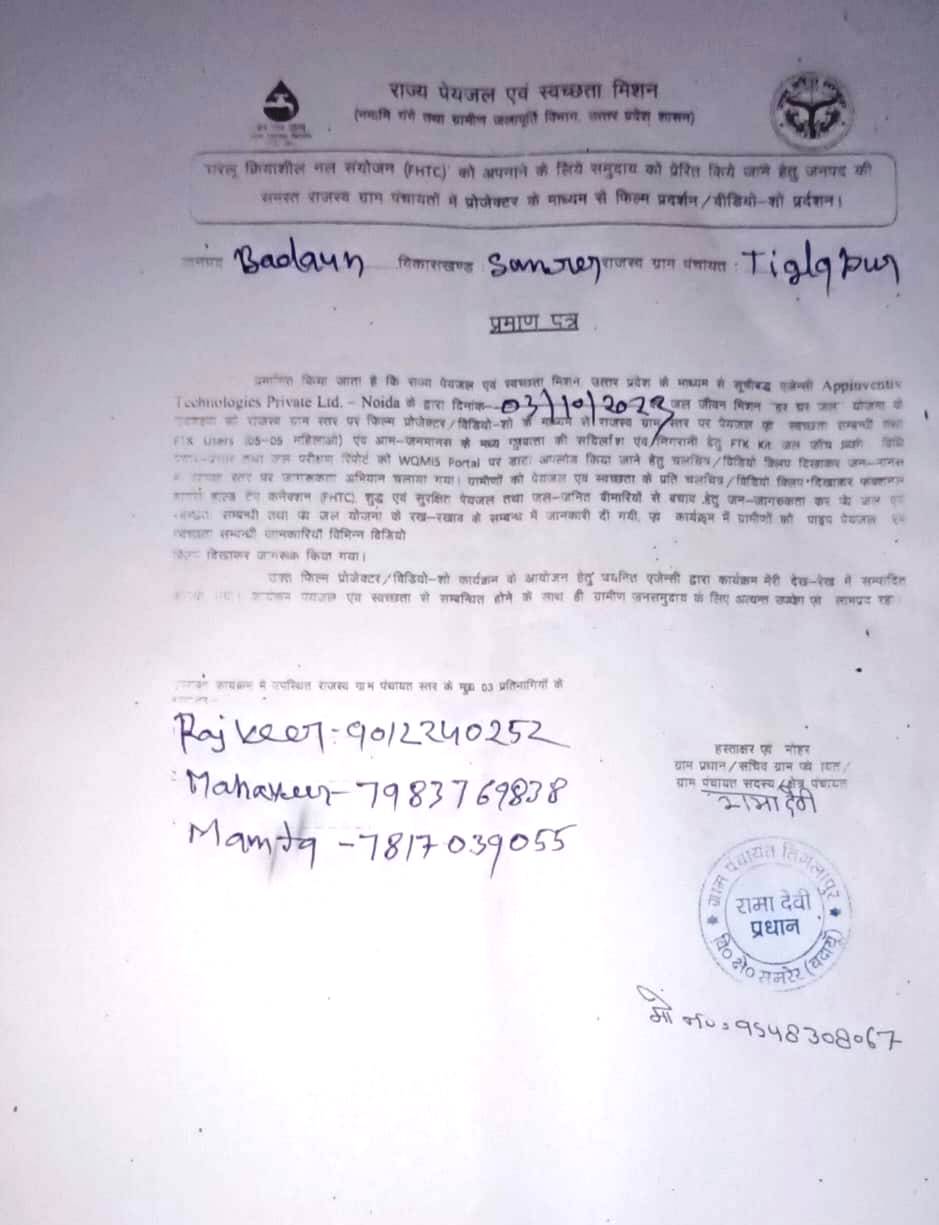 राज्य पेयजल एवं स्वच्छता मिशन
(नमामि गंगे तथा ग्रामीण जलापूर्ति विभाग, उत्तर प्रदेश शासन)
क्रियाशील नल संयोजन (FHTC)' को अपनाने के लिये समुदाय को प्रेरित किये जाने हेतु जनपद की
समस्त राजस्व ग्राम पंचायतों में प्रोजेक्टर के माध्यम से फिल्म प्रदर्शन/वीडियो-शो प्रर्दशन।
जनपद Badaun विकासखण्ड : Samrer राजस्व ग्राम पंचायत : Tiglapur
प्रमाण पत्र
प्रमाणित किया जाता है कि राज्य पेयजल एवं स्वच्छता मिशन, उत्तर प्रदेश के माध्यम से सूचीबद्ध एजेन्सी Appinventiv
Technologies Private Ltd. – Noida के द्वारा दिनांक- 03/10/2023 जल जीवन मिशन "हर घर जल" योजना के
को राजस्व ग्राम स्तर पर फिल्म प्रोजेक्टर/विडियो-शो के माध्यम से राजस्व ग्राम स्तर पर पेयजल एवं स्वच्छता सम्बन्धी तथा
FTK Users (05-05 महिलाओं) एवं आम-जनमानस के मध्य गुणवत्ता की निगरानी हेतु FTK Kit जल जाँच विधि
तथा जल परीक्षण रिपोर्ट को WQMIS Portal पर डाटा अपलोड किया जाने हेतु चलचित्र/विडियो क्लिप दिखाकर जन-मानस
स्तर पर जागरूकता अभियान चलाया गया। ग्रामीणों को पेयजल एवं स्वच्छता के प्रति चलचित्र/विडियो क्लिप दिखाकर फंक्शनल
टैप कनेक्शन (FHTC), शुद्ध एवं सुरक्षित पेयजल तथा जल-जनित बीमारियों से बचाव हेतु जन-जागरूकता कर जल एवं
सम्बन्धी तथा जल योजना के रख-रखाव के सम्बन्ध में जानकारी दी गयी, कार्यक्रम में ग्रामीणों को पाइप पेयजल एवं
स्वच्छता सम्बन्धी जानकारियाँ विभिन्न विडियो
क्लिप दिखाकर जागरूक किया गया।
उक्त फिल्म प्रोजेक्टर/विडियो-शो कार्यक्रम के आयोजन हेतु चयनित एजेन्सी द्वारा कार्यक्रम मेरी देख-रेख में सम्पादित
गया। कार्यक्रम पेयजल एवं स्वच्छता से सम्बन्धित होने के साथ ही ग्रामीण जनसमुदाय के लिए अत्यन्त लाभप्रद रहा
कार्यक्रम में उपस्थित राजस्व ग्राम पंचायत स्तर के मुख्य 03 प्रतिभागियों के
Rajveer:-9012240252
Mahaveer-7983769838
Mamta -7817039055
हस्ताक्षर एवं मोहर
ग्राम प्रधान/सचिव ग्राम पंचायत/
ग्राम पंचायत सदस्य/क्षेत्र पंचायत
रामा देवी
ग्राम पंचायत तिगलापुर
रामा देवी
प्रधान
वि० क्षे० समरेर (बदायूँ)
मो न० : 9548308067